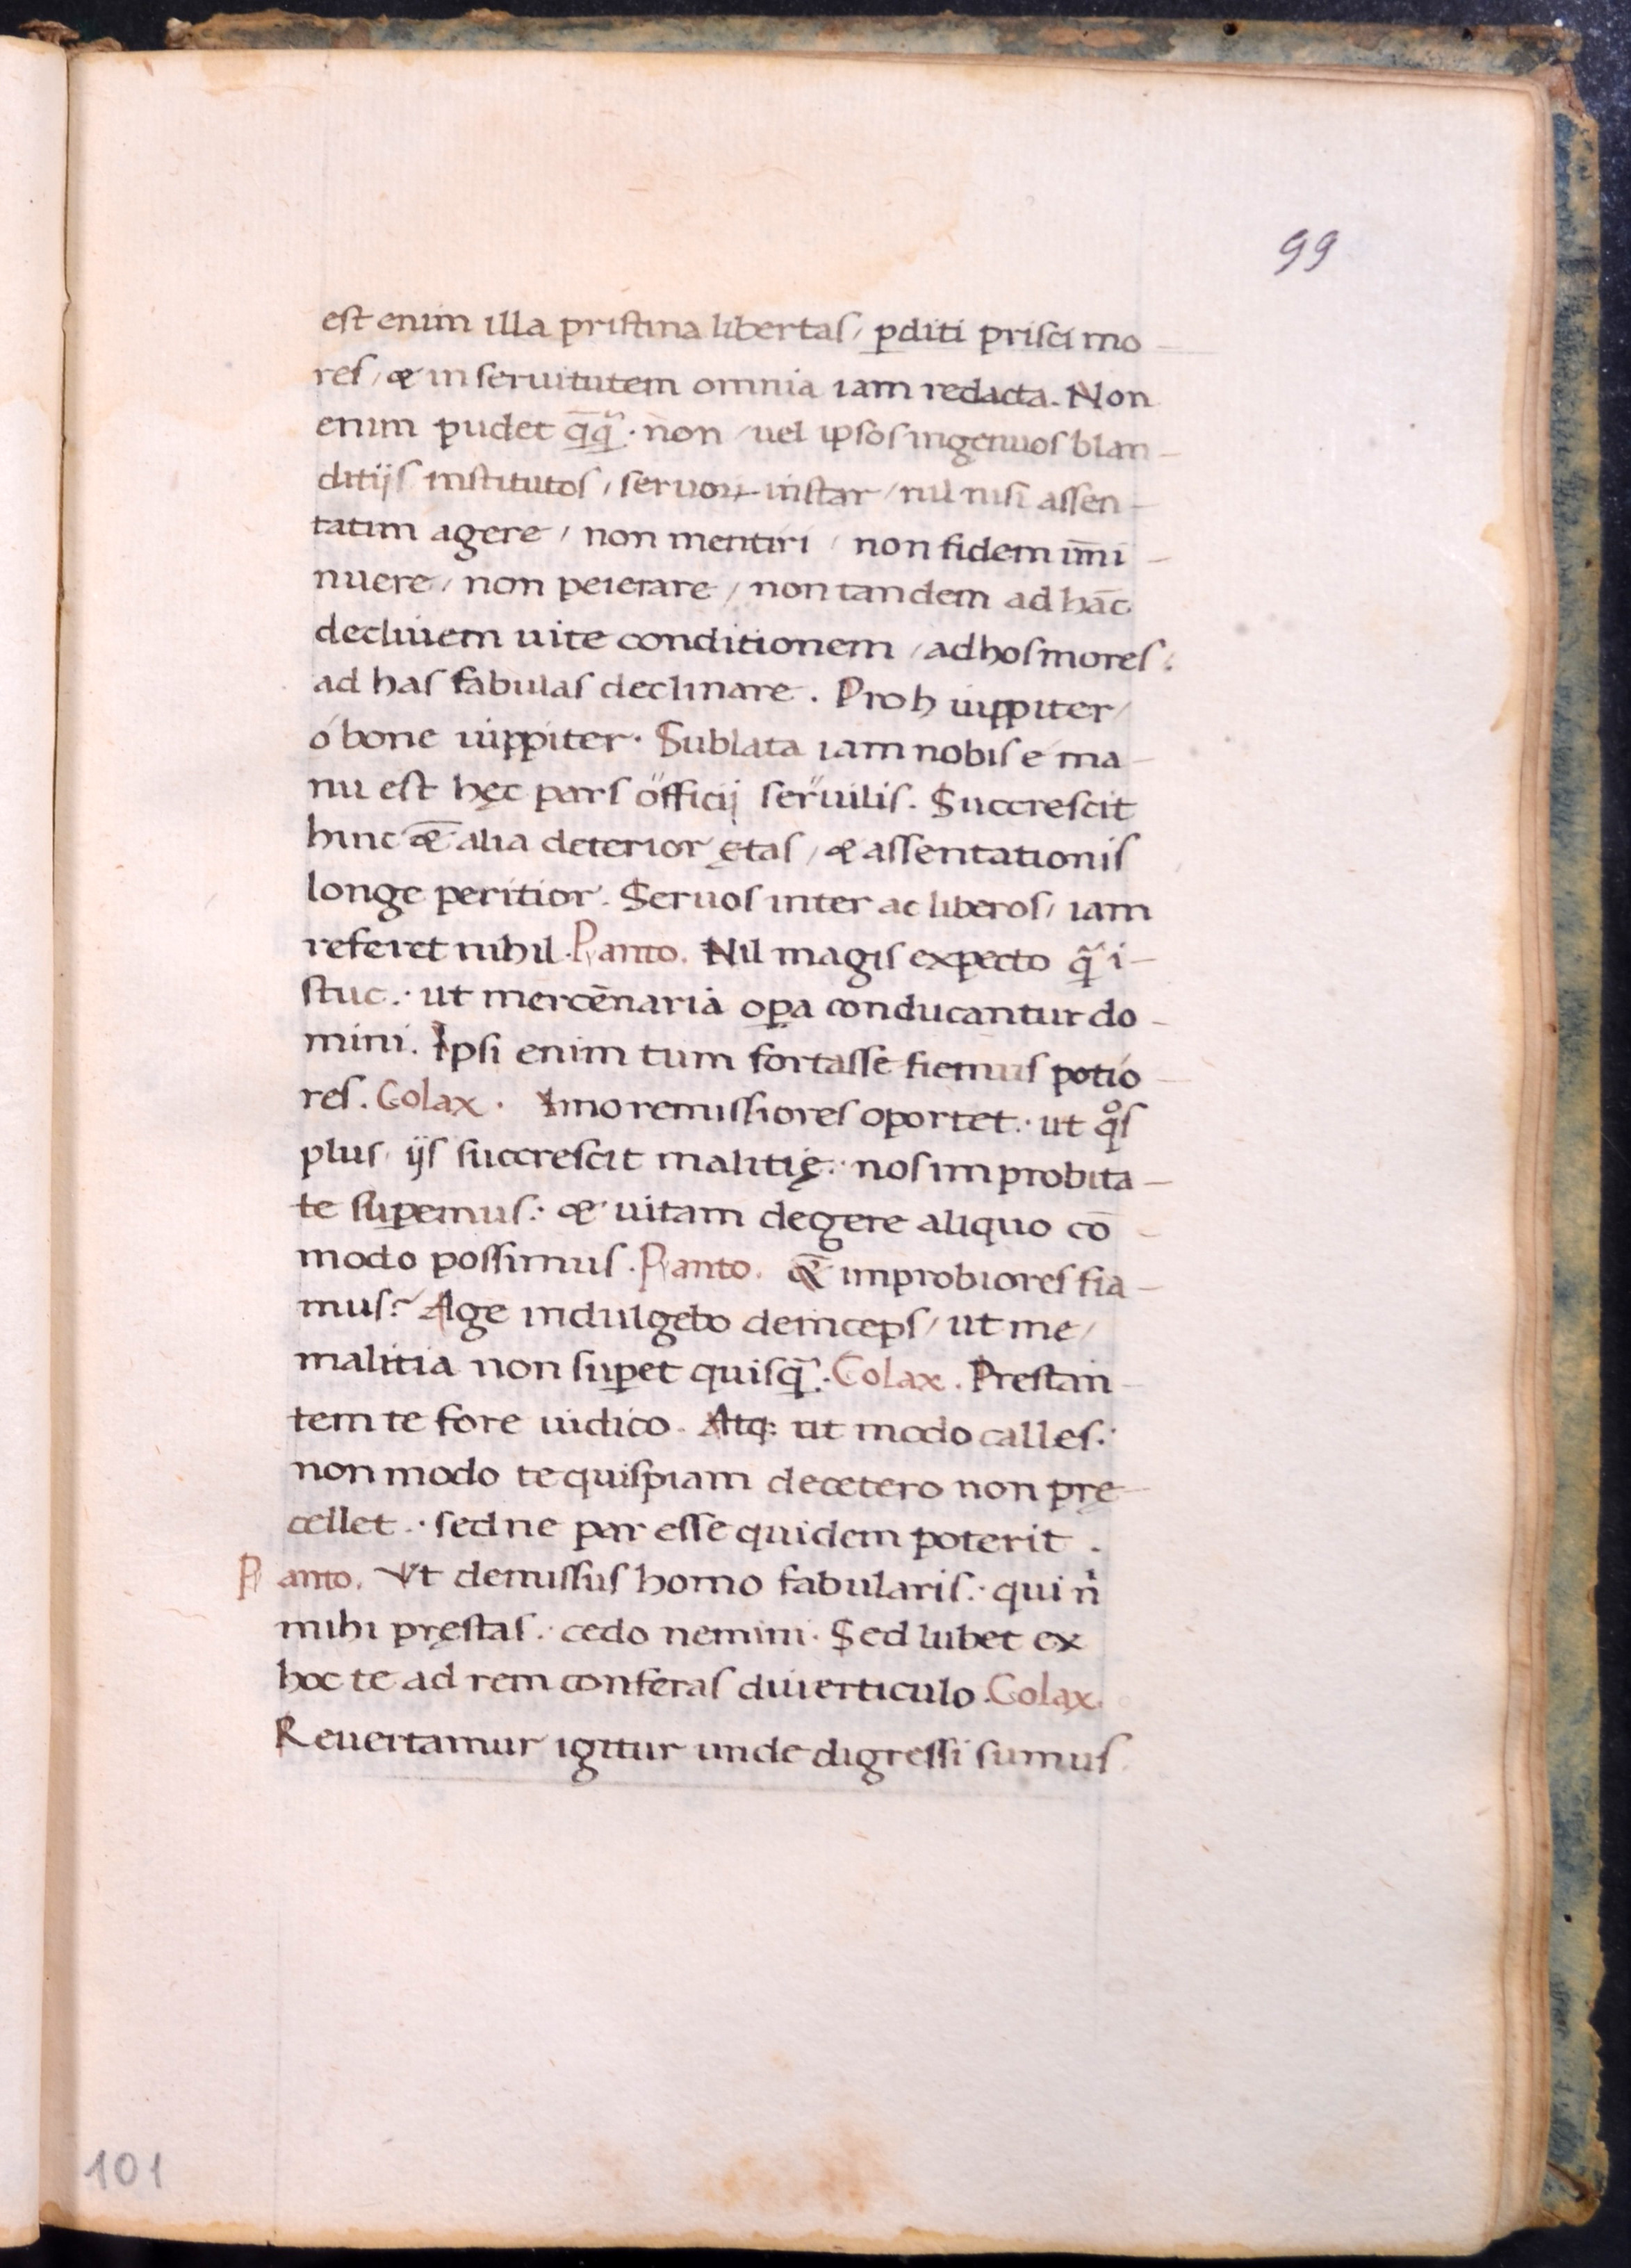 99
est enim illa pristina libertas / ꝑditi prisci mo-
res / & in seruitutem omnia iam redacta. Non
enim pudet q̄q̃ · non / uel ipsos ingenuos blan-
ditijs institutos / seruoꝝ instar / nil nisi assen-
tatim agere / non mentiri / non fidem im̄i-
nuere / non peierare / non tandem ad hāc
decliuem uite conditionem / ad hos mores :
ad has fabulas declinare. Proh iuppiter /
ó bone iuppiter · Sublata iam nobis e ma-
nu est hęc pars officij seruilis. Succrescit
hinc &̄ alia deterior ętas / & assentationis
longe peritior. Seruos inter ac liberos / iam
referet nihil. Panto. Nil magis expecto q̃ i-
stuc .· ut mercēnaria oꝑa conducantur do-
mini. Ipsi enim tum fortasse fiemus potio-
res. Colax. Imo remissiores oportet .· ut q̊s
plus / ijs succrescit malitię .· nos improbita-
te suꝑemus .· & uitam degere aliquo cō-
modo possimus. Panto. &̄ improbiores fia-
mus? Age indulgebo deinceps / ut me /
malitia non suꝑet quisq̃ .· Colax. Prestan-
tem te fore uidico. Atq; ut modo calles .·
non modo te quispiam decetero non prę-
cellet .· sed ne par esse quidem poterit .
Panto. Vt demissus homo fabularis .· qui n̍
mihi pręstas .· cedo nemini. Sed lubet ex
hoc te ad rem conferas diuerticulo. Colax.
Reuertamur igitur unde digressi sumus.
101